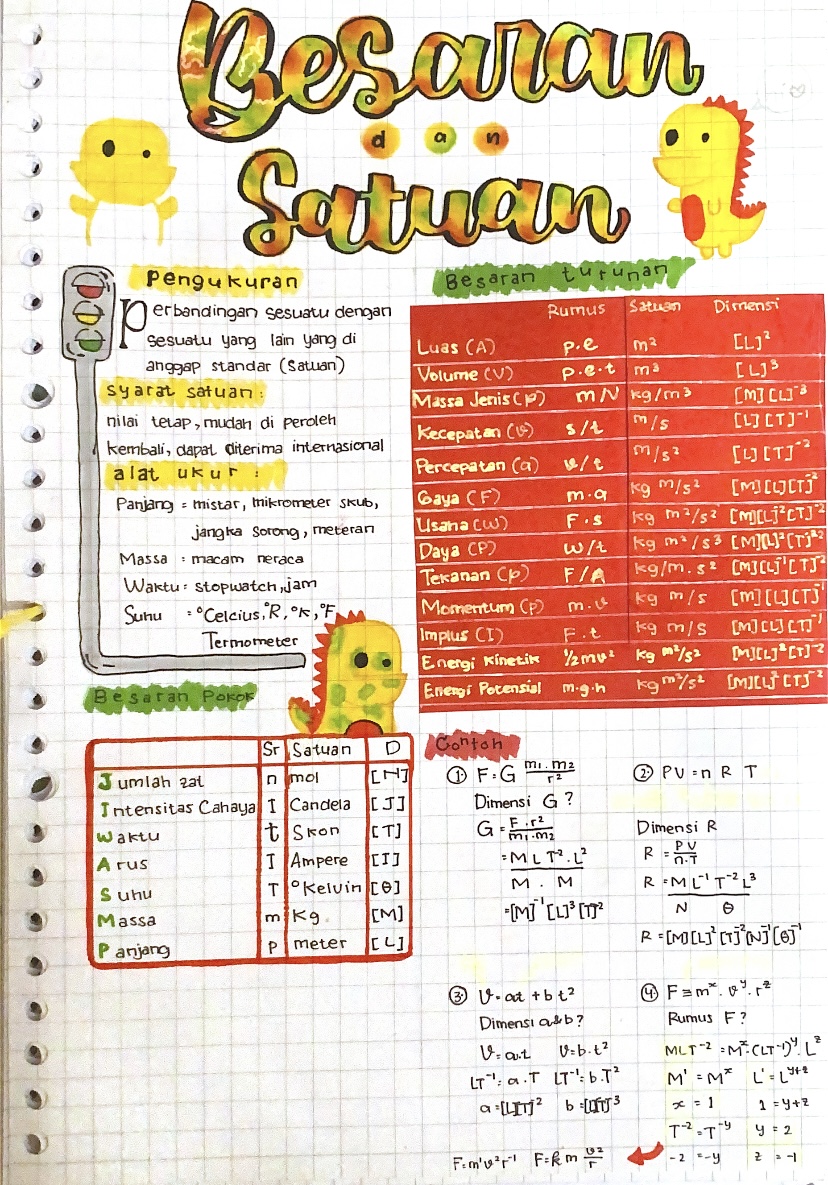 Besaran
dan
Satuan
Pengukuran
Perbandingan sesuatu dengan
sesuatu yang lain yang di
anggap standar (Satuan)
syarat satuan :
nilai tetap, mudah di peroleh
kembali, dapat diterima internasional
alat ukur :
Panjang = mistar, mikrometer skub,
jangka sorong, meteran
Massa : macam neraca
Waktu : stopwatch, jam
Suhu = °Celcius, °R, °K, °F
Termometer
Besaran Pokok
Sr Satuan D
Jumlah zat n mol [N]
Intensitas Cahaya I Candela [J]
Waktu t Skon [T]
Arus I Ampere [I]
Suhu T °Kelvin [θ]
Massa m Kg [M]
Panjang P meter [L]
Besaran turunan
Rumus Satuan Dimensi
Luas (A) p.e m² [L]²
Volume (V) p.e.t m³ [L]³
Massa Jenis (ρ) m/V kg/m³ [M][L]⁻³
Kecepatan (v) s/t m/s [L][T]⁻¹
Percepatan (a) v/t m/s² [L][T]⁻²
Gaya (F) m.a kg m/s² [M][L][T]⁻²
Usaha (W) F.s kg m²/s² [M][L]²[T]⁻²
Daya (P) W/t kg m²/s³ [M][L]²[T]⁻²
Tekanan (p) F/A kg/m.s² [M][L]⁻¹[T]⁻²
Momentum (p) m.v kg m/s [M][L][T]⁻¹
Implus (I) F.t kg m/s [M][L][T]⁻¹
Energi Kinetik ½mv² kg m²/s² [M][L]²[T]⁻²
Energi Potensial m.g.h kg m²/s² [M][L]²[T]⁻²
Contoh
① F = G m₁.m₂/r²
Dimensi G ?
G = F.r²/m₁.m₂
= M L T⁻².L²
M . M
= [M]⁻¹[L]³[T]⁻²
② PV = n R T
Dimensi R
R = PV/n.T
R = M L⁻¹ T⁻² L³
N θ
R = [M][L]²[T]⁻²[N]⁻¹[θ]⁻¹
③ V = at + bt²
Dimensi a&b?
V = a.t V = b.t²
LT⁻¹ = a.T LT⁻¹ = b.T²
a = [L][T]⁻² b = [L][T]⁻³
④ F ≡ mˣ.vʸ.rᶻ
Rumus F?
MLT⁻² = Mˣ.(LT⁻¹)ʸ.Lᶻ
M¹ = Mˣ L¹ = Lʸ⁺ᶻ
x = 1 1 = y+z
T⁻² = T⁻ʸ y = 2
-2 = -y z = -1
F = m¹v²r⁻¹ F = k m v²/r